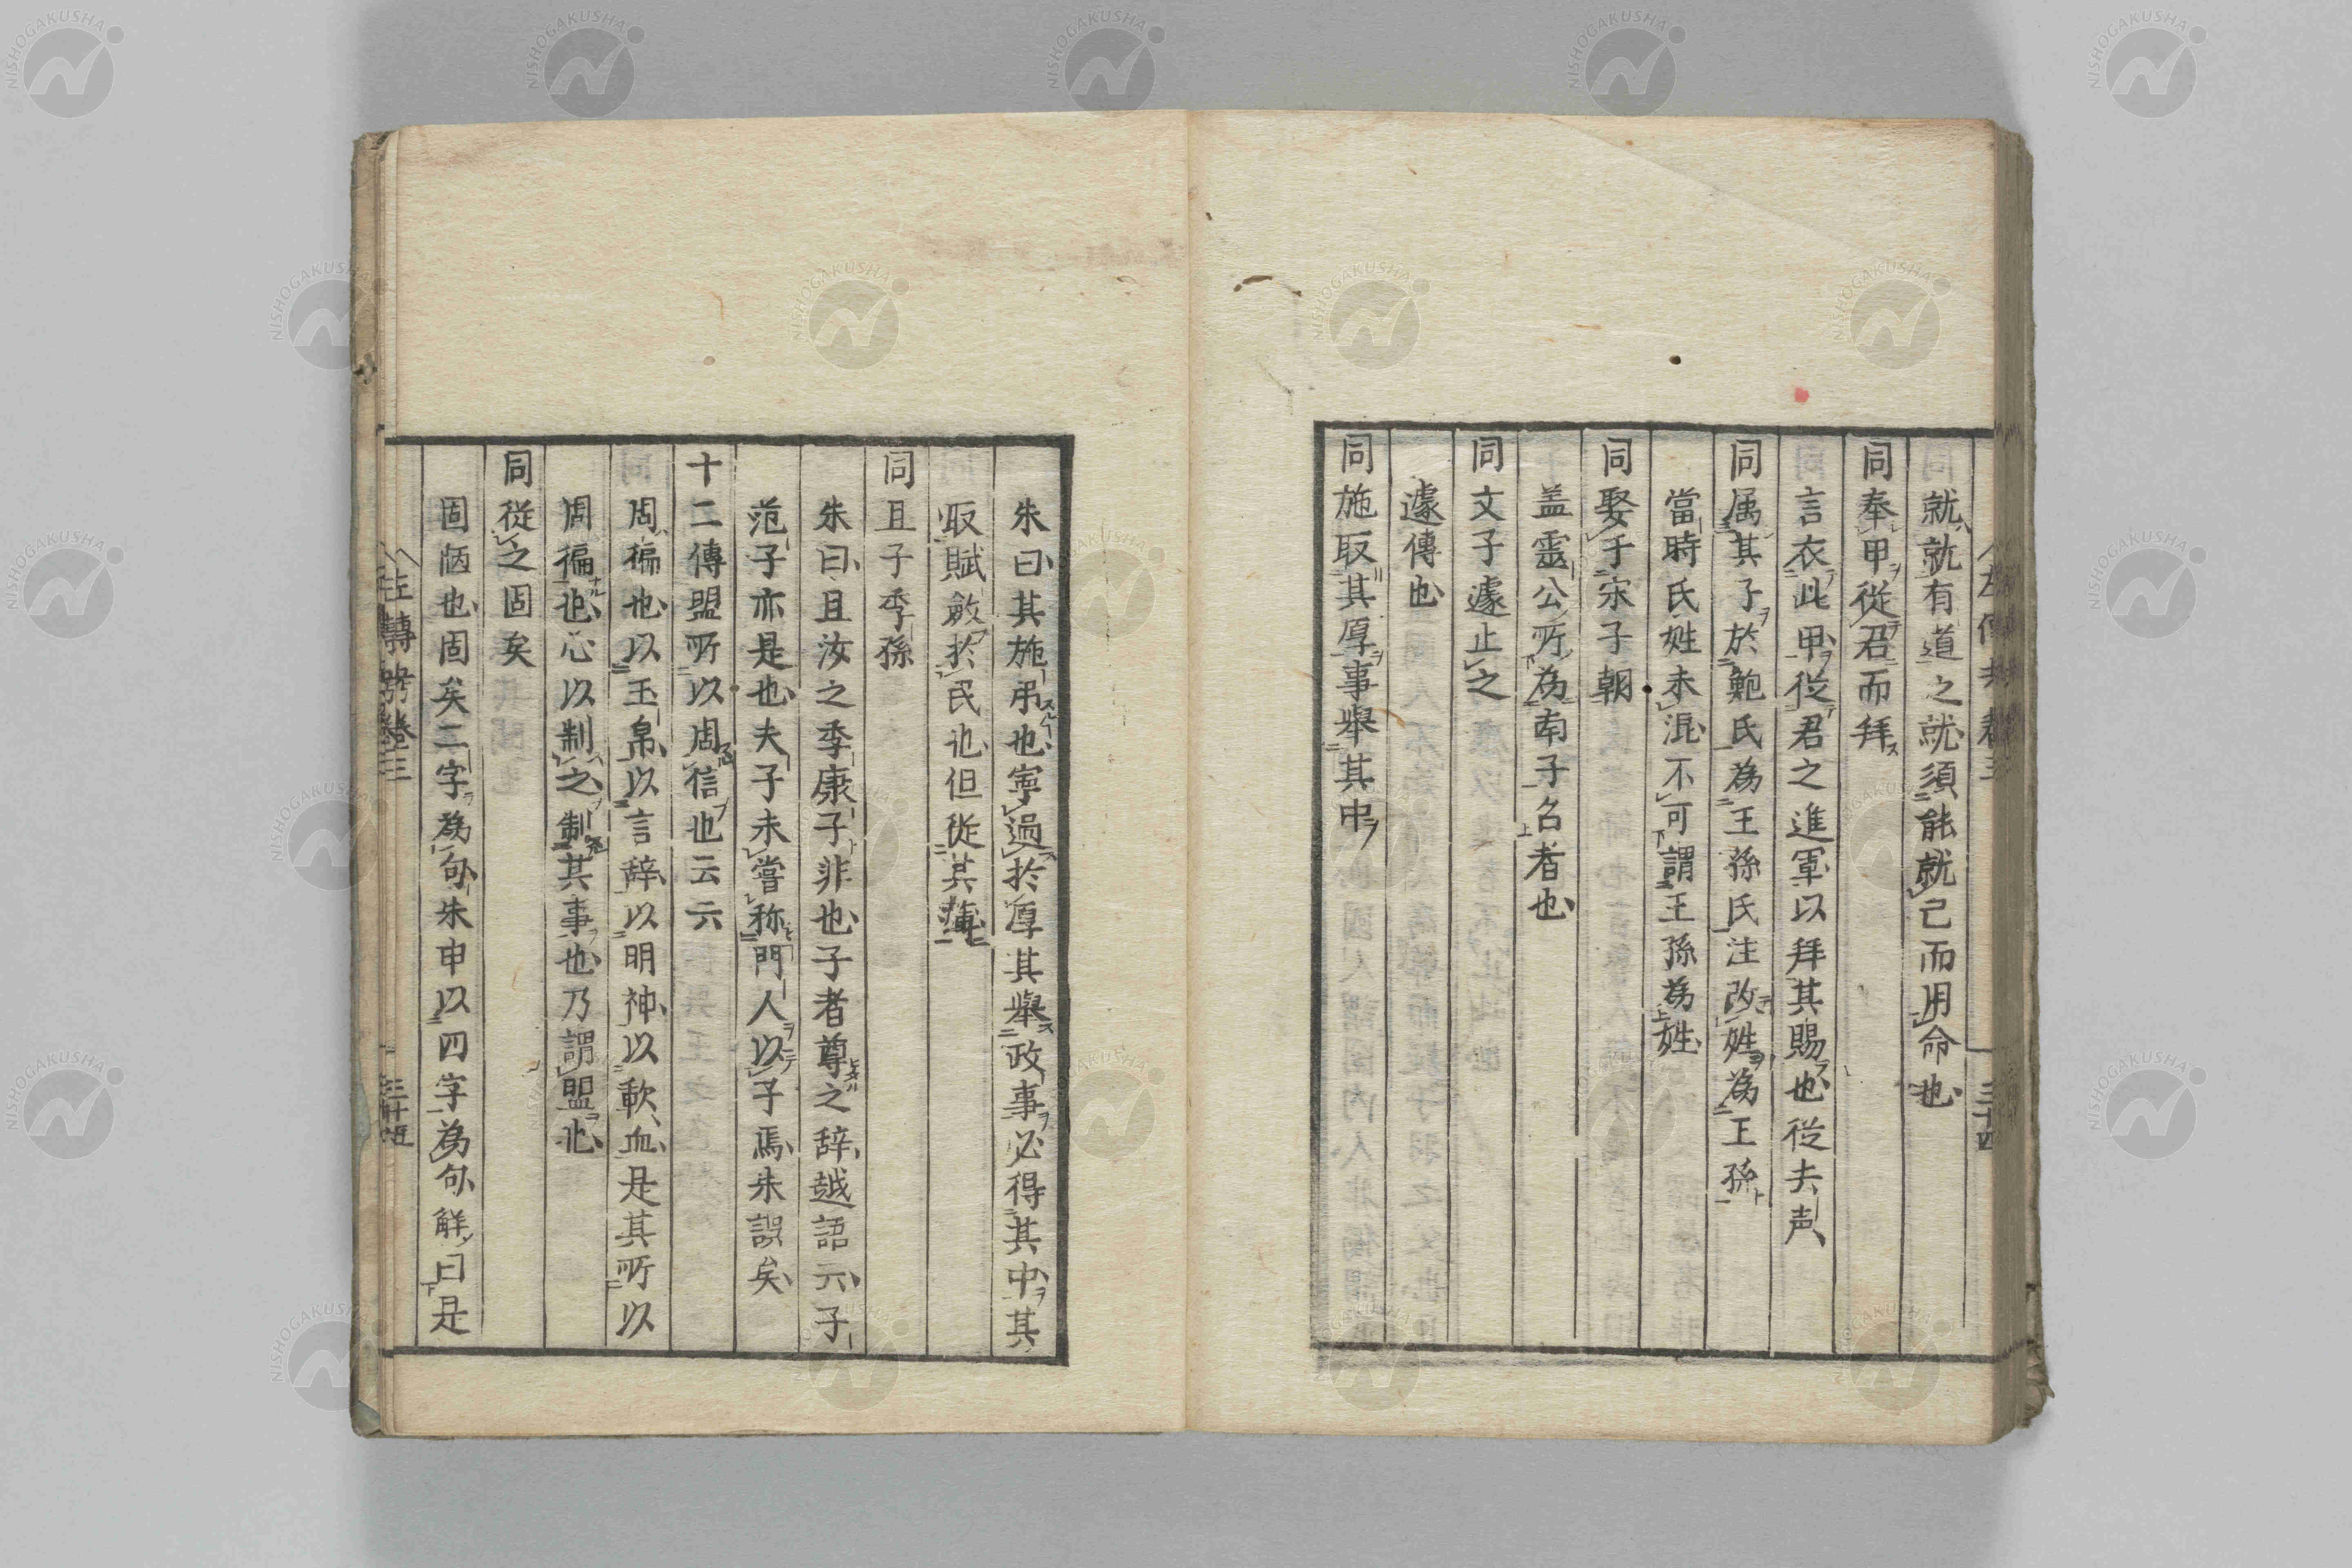 就就有道之就須能就己而用命也
同奉甲從君而拜
言衣此甲從君之進軍以拜其賜也從去声
同属其子於鮑氏為王孫氏注改姓為王孫
當時氏姓未混不可謂王孫為姓
同娶于宋子朝
盖靈公所為南子召者也
同文子遽止之
遽傳也
同施取其厚事舉其中
朱曰其施用也寧過於厚其舉政事必得其中其
取賦斂於民也但從其薄
同且子季孫
朱曰且汝之季康子非也子者尊之辞越語云子
范子亦是也夫子未嘗称門人以子焉朱誤矣
十二傳盟所以周信也云云
周徧也以玉帛以言辞以明神以歃血是其所以
周徧也心以制之制其事也乃謂盟也
同從之固矣
固陋也固矣二字為句朱申以四字為句解曰是
三十四
三十五
NISHOGAKUSHA